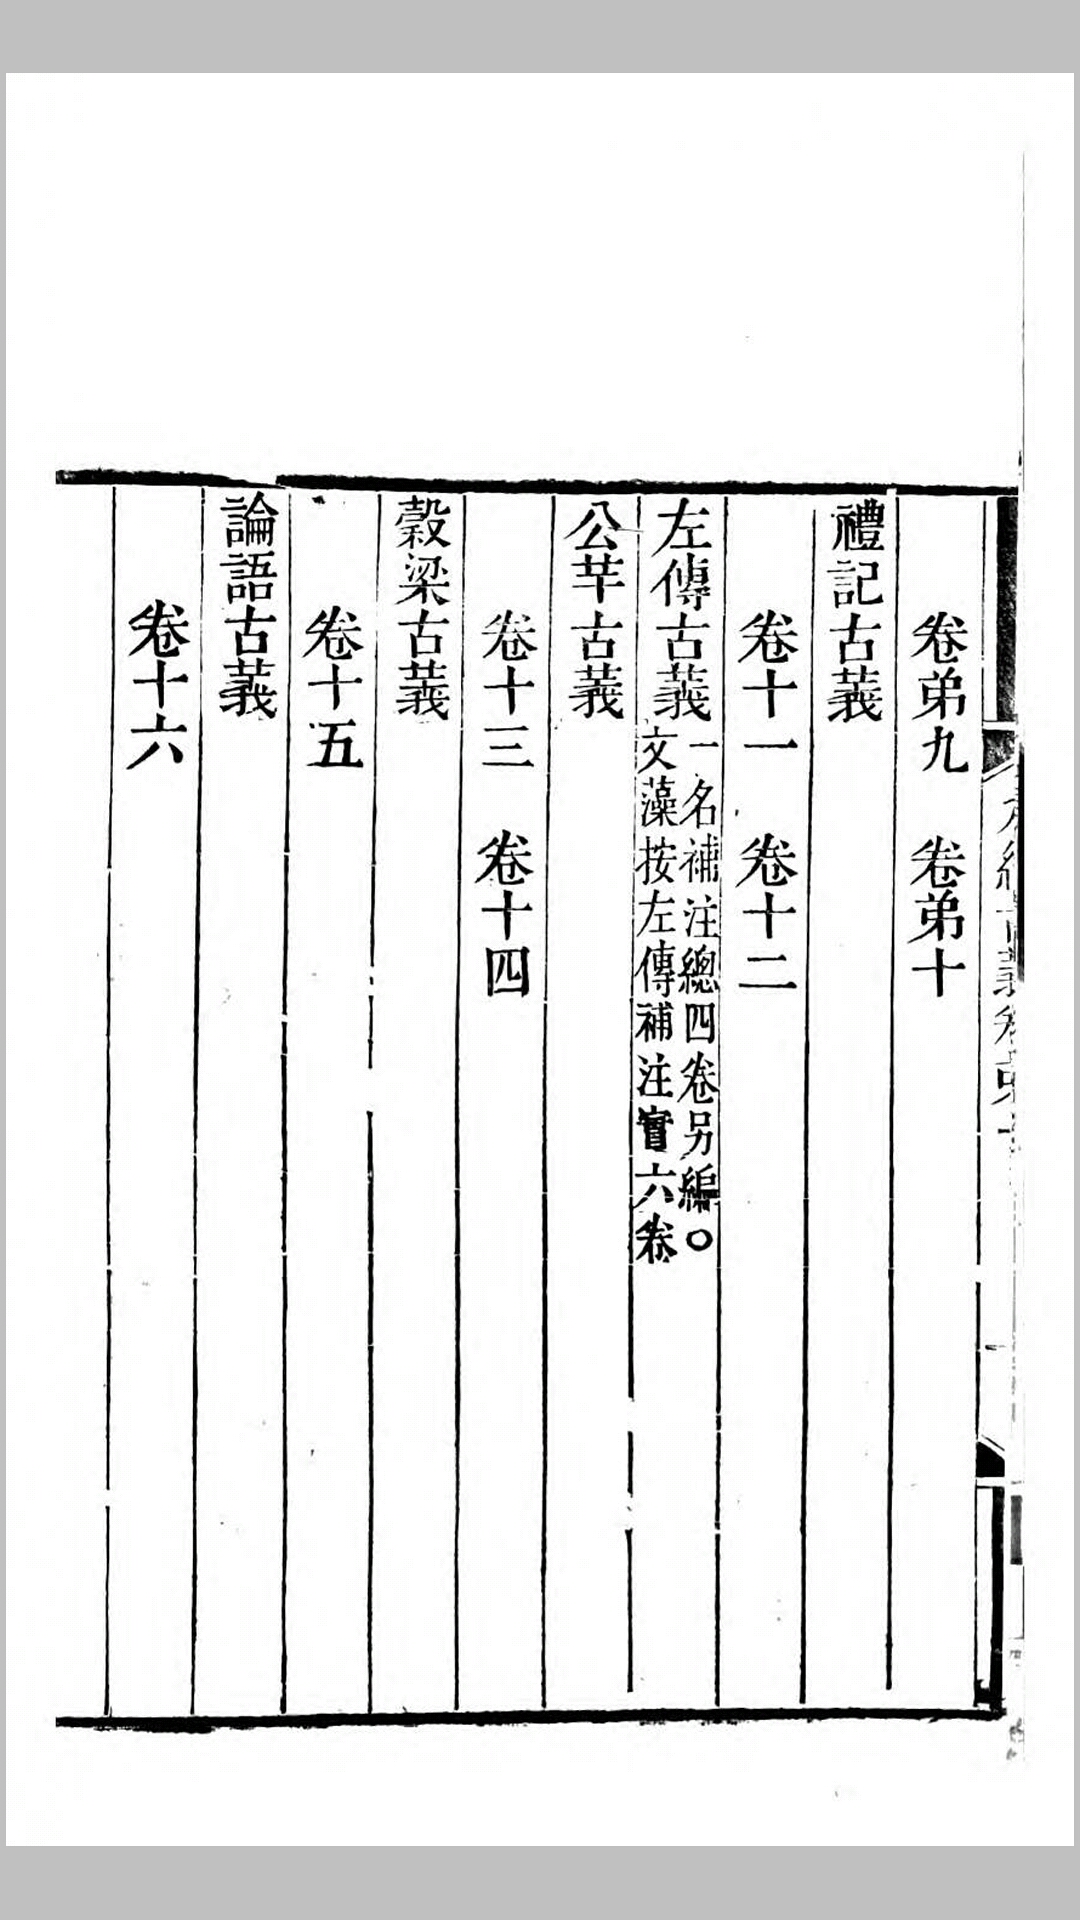 卷弟九　卷弟十
禮記古義
卷十一　卷十二
左傳古義
一名補注總四卷另編○
文藻按左傳補注實六卷
公羊古義
卷十三　卷十四
穀梁古義
卷十五
論語古義
卷十六